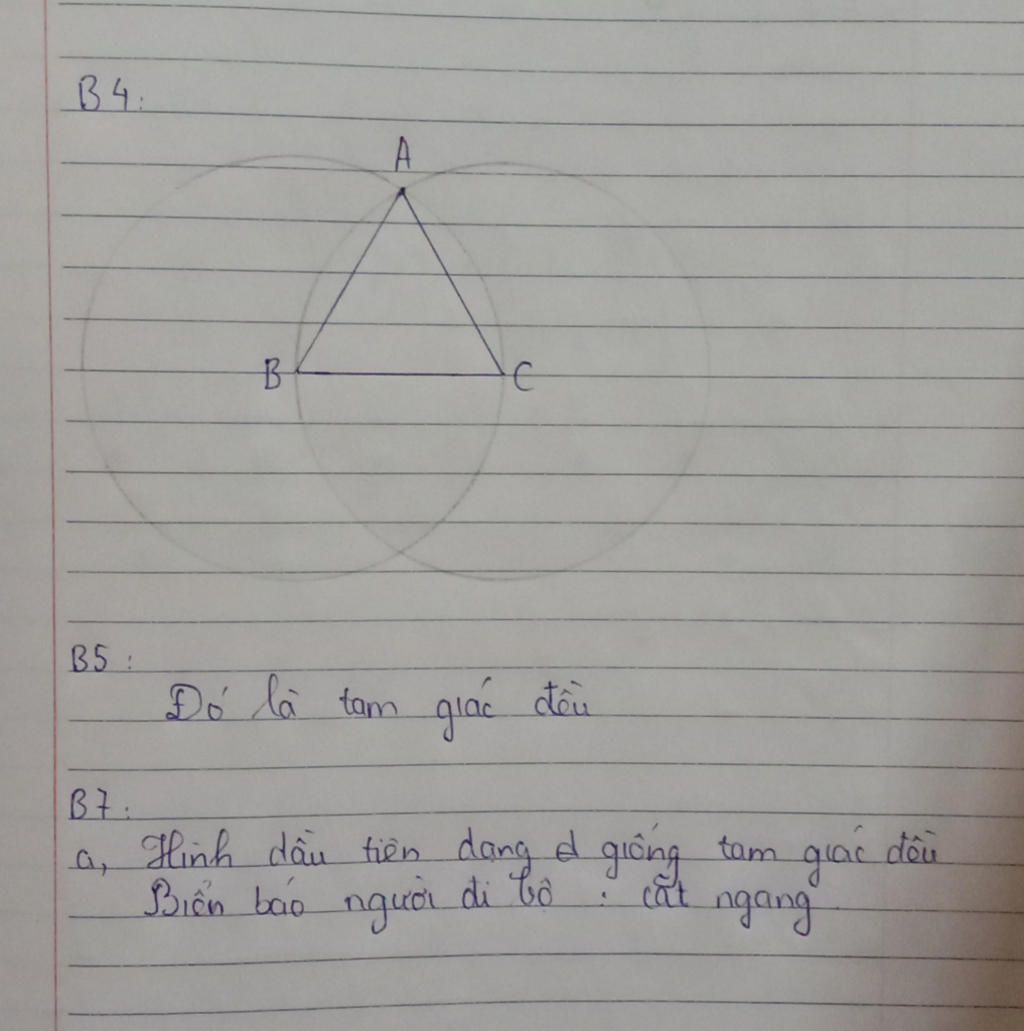 B4:
A
B
C
B5:
Đó là tam giác đều
B7:
a, Hình dầu tiên dạng giống tam giác đều
Biển báo người đi bộ : cắt ngang